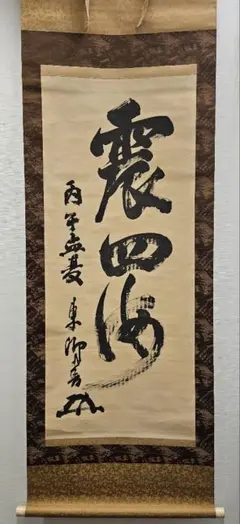 震四海
丙午孟夏 東郷書